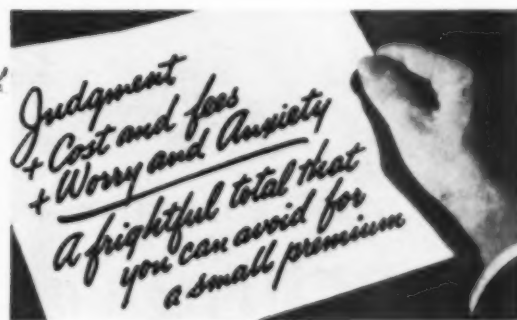 Judgment
+ Cost and fees
+ Worry and Anxiety
A frightful total that
you can avoid for
a small premium